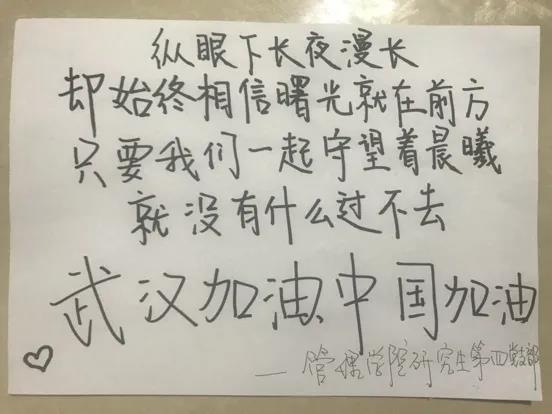 纵眼下长夜漫长
却始终相信曙光就在前方
只要我们一起守望着晨曦
就没有什么过不去
武汉加油中国加油
——管理学院研究生第四党支部